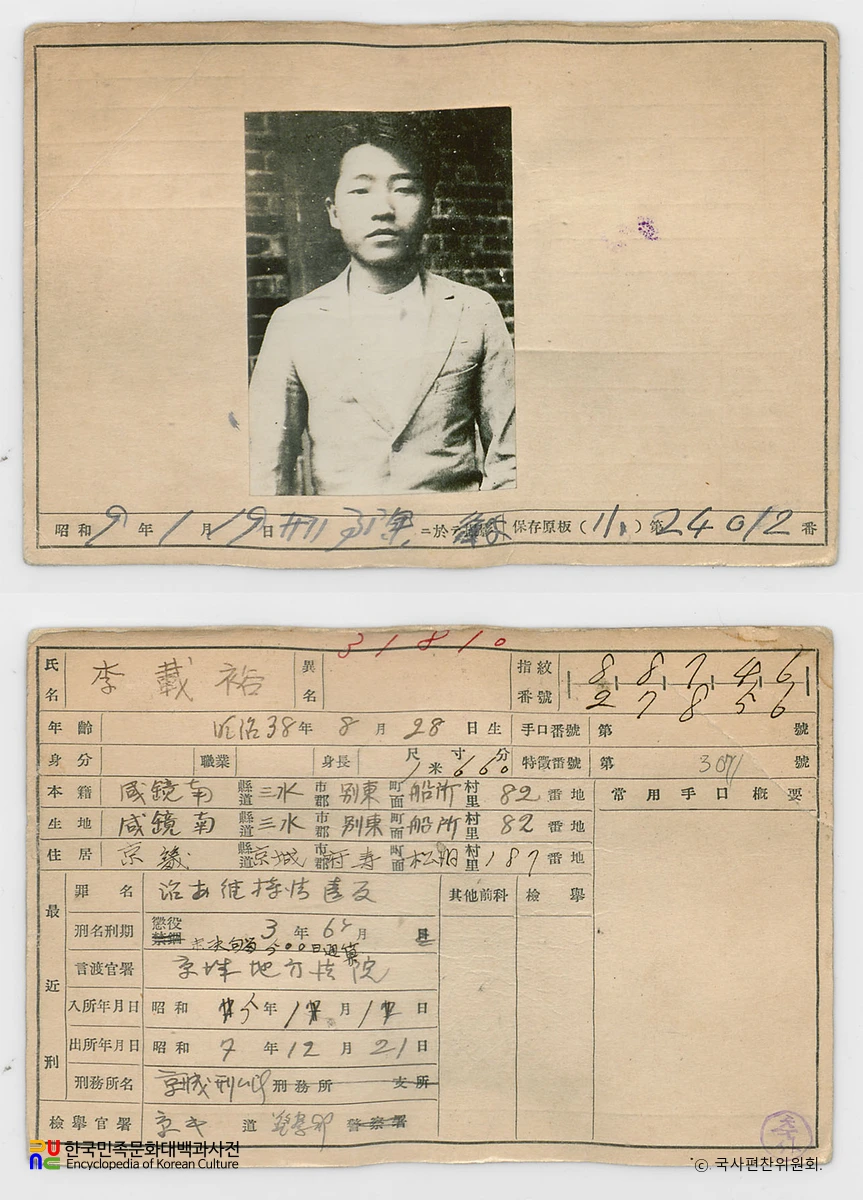 昭和9年1月19日 ニ於テ 保存原板( )第24012番
31810
氏名 李載裕 異名 指紋番號 8 8 7 4 6
2 7 8 5 6
年齡 明治38年8月28日生 手口番號 第 號
身分 職業 身長 尺寸分 1米660 特徵番號 第 307 號
本籍 咸鏡南 縣道 三水 市郡 別東 町面 船所 村里 82番地 常用手口概要
生地 咸鏡南 縣道 三水 市郡 別東 町面 船所 村里 82番地
住居 京畿 縣道 京城 市郡 府 町面 村里 187番地
最近刑 罪名 治安維持法違反 其他前科 檢擧
刑名刑期 懲役 禁錮 3年6月
言渡官署 京城地方法院
入所年月日 昭和 年 月 日
出所年月日 昭和7年12月21日
刑務所名 京城刑 刑務所 支所
檢擧官署 京キ 道 警察部 警察署
한국민족문화대백과사전
Encyclopedia of Korean Culture
© 국사편찬위원회.